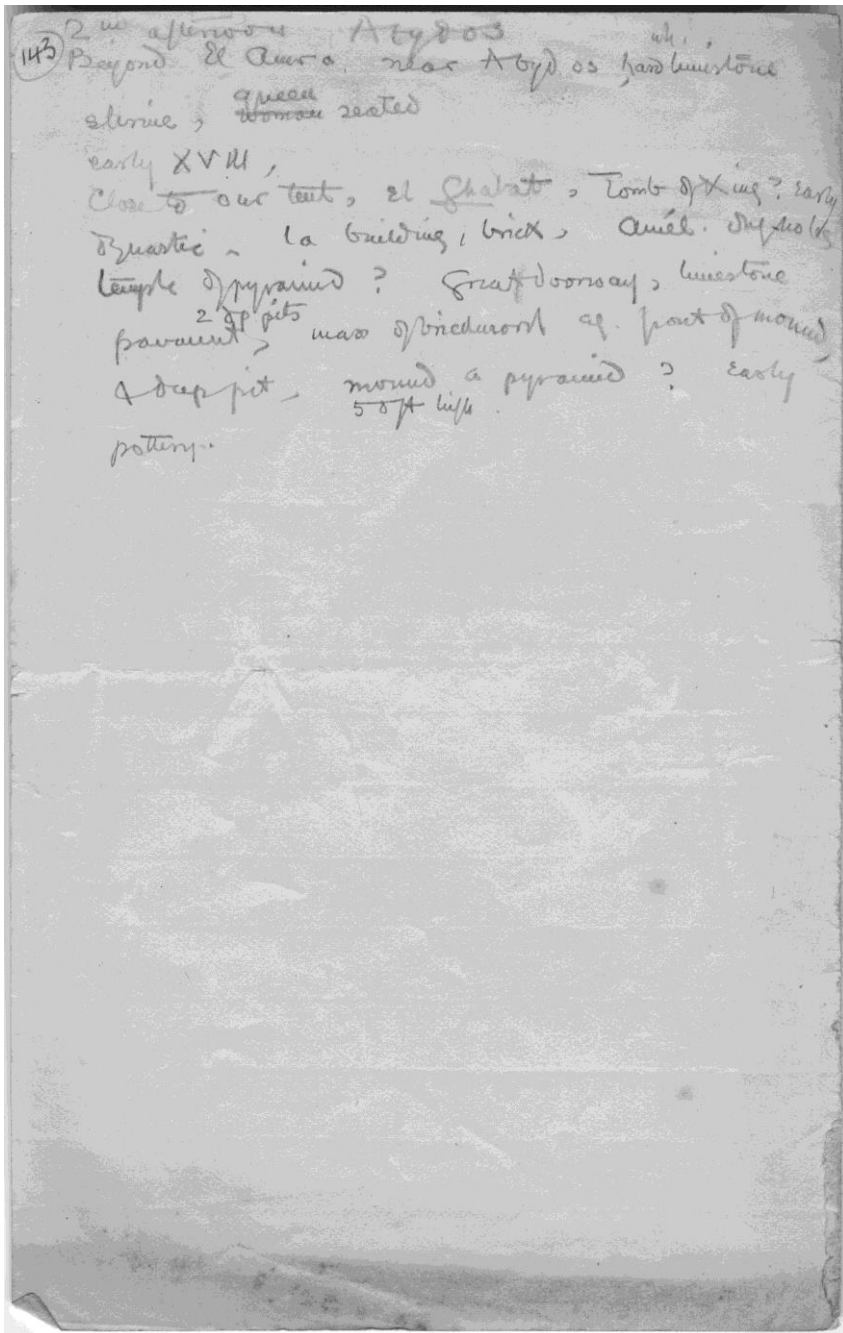 (143) 2nd afternoon Abydos
Beyond El Amra, near Abydos wh. hard limestone
shrine, woman queen seated
early XVIII,
Close to our tent, El Ghabat, Tomb of King? Early
dynastic. la building, brick, Amél. dug holes
temple of pyramid? Great doorway, limestone
pavement, 2 dp pits mass of brickwork ag. front of mound,
& deep pit, mound a pyramid? Early
50 ft high.
pottery.